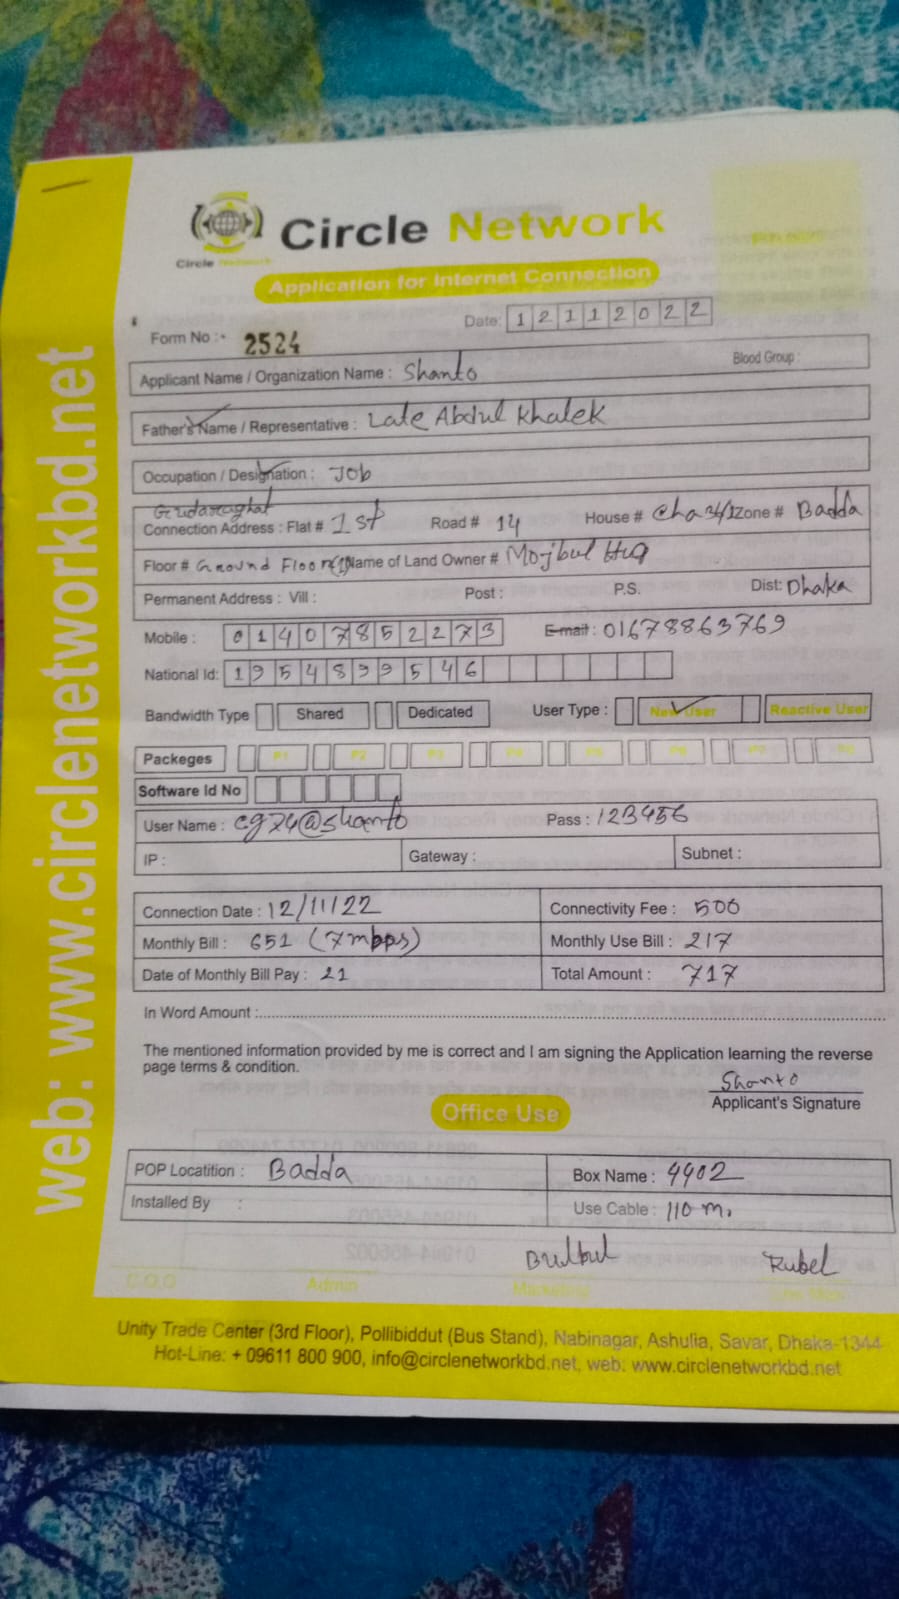 Circle Network
Circle Network
Application for Internet Connection
Date: 12112022
Form No :- 2524
Applicant Name / Organization Name : Shanto Blood Group :
Father's Name / Representative : Late Abdul Khalek
Occupation / Designation : Job
Gudaraghat
Connection Address : Flat # 1st Road # 14 House # Cha 34/1 Zone # Badda
Floor # Ground Floor(1) Name of Land Owner # Mojbul Huq
Permanent Address : Vill : Post : P.S. Dist: Dhaka
Mobile : 01407852273 E-mail : 01678863769
National Id: 1954899546
Bandwidth Type Shared Dedicated User Type : New User Reactive User
Packeges P1 P2 P3 P4 P5 P6 P7 P8
Software Id No
User Name : cg74@shanto Pass : 123456
IP : Gateway : Subnet :
Connection Date : 12/11/22 Connectivity Fee : 500
Monthly Bill : 651 (7mbps) Monthly Use Bill : 217
Date of Monthly Bill Pay : 21 Total Amount : 717
In Word Amount :
The mentioned information provided by me is correct and I am signing the Application learning the reverse
page terms & condition.
Shanto
Applicant's Signature
Office Use
POP Locatition : Badda Box Name : 4402
Installed By : Use Cable : 110 m.
Bulbul Rubel
C.O.O Admin Marketing
Unity Trade Center (3rd Floor), Pollibiddut (Bus Stand), Nabinagar, Ashulia, Savar, Dhaka-1344
Hot-Line: + 09611 800 900, info@circlenetworkbd.net, web: www.circlenetworkbd.net
web: www.circlenetworkbd.net